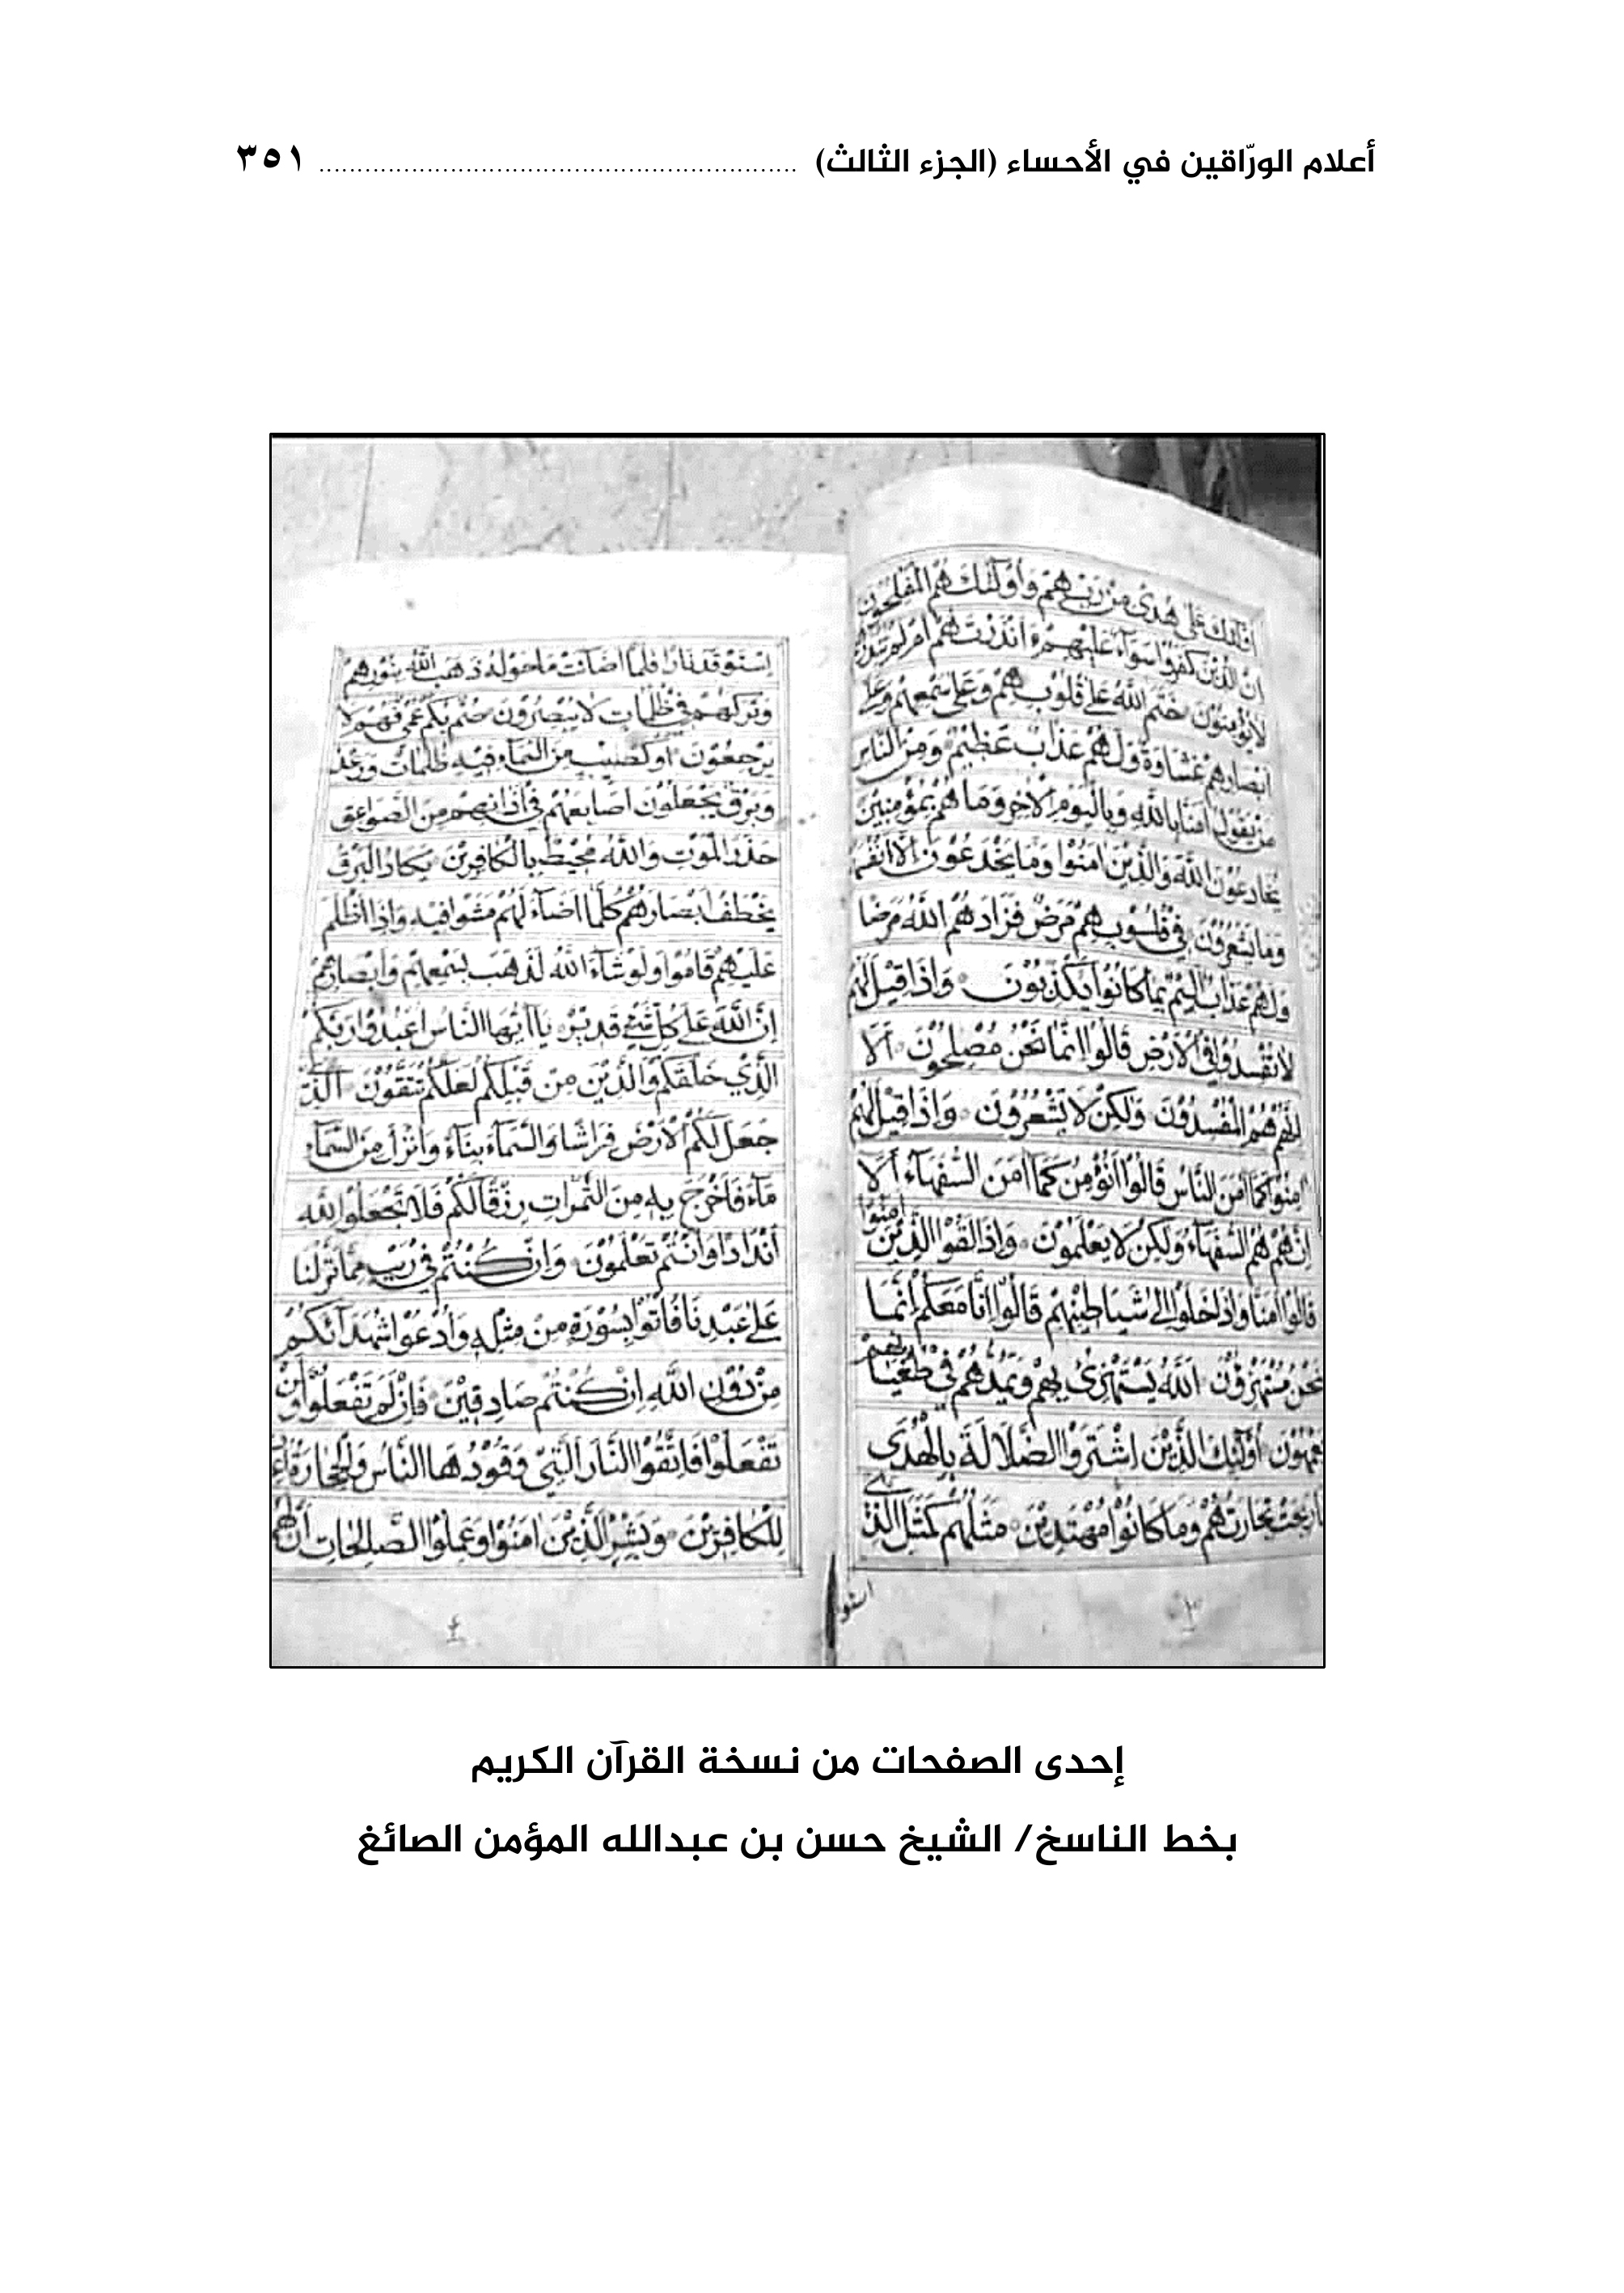 أعلام الورّاقين في الأحساء (الجزء الثالث) ............................................................ ٣٥١
اولئك على هدى من ربهم واولئك هم المفلحون
ان الذين كفروا سوآء عليهم ءانذرتهم ام لم تنذرهم
لا يؤمنون ختم الله على قلوبهم وعلى سمعهم وعلى
ابصارهم غشاوة ولهم عذاب عظيم ومن الناس
من يقول امنا بالله وباليوم الاخر وما هم بمؤمنين
يخادعون الله والذين امنوا وما يخدعون الا انفسهم
وما يشعرون في قلوبهم مرض فزادهم الله مرضا
ولهم عذاب اليم بما كانوا يكذبون واذا قيل لهم
لا تفسدوا في الارض قالوا انما نحن مصلحون الا
انهم هم المفسدون ولكن لا يشعرون واذا قيل لهم
امنوا كما امن الناس قالوا انؤمن كما امن السفهآء الا
انهم هم السفهآء ولكن لا يعلمون واذا لقوا الذين امنوا
قالوا امنا واذا خلوا الى شياطينهم قالوا انا معكم انما
نحن مستهزؤن الله يستهزئ بهم ويمدهم في طغيانهم
يعمهون اولئك الذين اشتروا الضلالة بالهدى
فما ربحت تجارتهم وما كانوا مهتدين مثلهم كمثل الذي
استو
٣
استوقد نارا فلما اضآئت ما حوله ذهب الله بنورهم
وتركهم في ظلمات لا يبصرون صم بكم عمي فهم لا
يرجعون او كصيب من السمآء فيه ظلمات ورعد
وبرق يجعلون اصابعهم في اذانهم من الصواعق
حذر الموت والله محيط بالكافرين يكاد البرق
يخطف ابصارهم كلما اضآء لهم مشوا فيه واذا اظلم
عليهم قاموا ولو شآء الله لذهب بسمعهم وابصارهم
ان الله على كل شئ قدير يا ايها الناس اعبدوا ربكم
الذي خلقكم والذين من قبلكم لعلكم تتقون الذي
جعل لكم الارض فراشا والسمآء بنآء وانزل من السمآء
مآء فاخرج به من الثمرات رزقا لكم فلا تجعلوا لله
اندادا وانتم تعلمون وان كنتم في ريب مما نزلنا
على عبدنا فاتوا بسورة من مثله وادعوا شهدآئكم
من دون الله ان كنتم صادقين فان لم تفعلوا ولن
تفعلوا فاتقوا النار التي وقودها الناس والحجارة اعدت
للكافرين وبشر الذين امنوا وعملوا الصالحات ان لهم
٤
إحدى الصفحات من نسخة القرآن الكريم
بخط الناسخ/ الشيخ حسن بن عبدالله المؤمن الصائغ